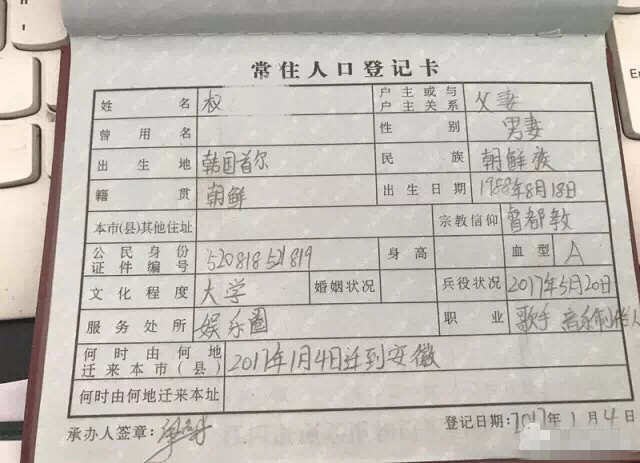 常住人口登记卡
姓名 权 户主或与户主关系 父妻
曾用名 性别 男妻
出生地 韩国首尔 民族 朝鲜族
籍贯 朝鲜 出生日期 1988年8月18日
本市(县)其他住址 宗教信仰 督都教
公民身份证件编号 520818521819 身高 血型 A
文化程度 大学 婚姻状况 兵役状况 2017年5月20日
服务处所 娱乐圈 职业 歌手 音乐制作人
何时由何地迁来本市(县) 2017年1月4日迁到安徽
何时由何地迁来本址
承办人签章: 登记日期:2017年1月4日